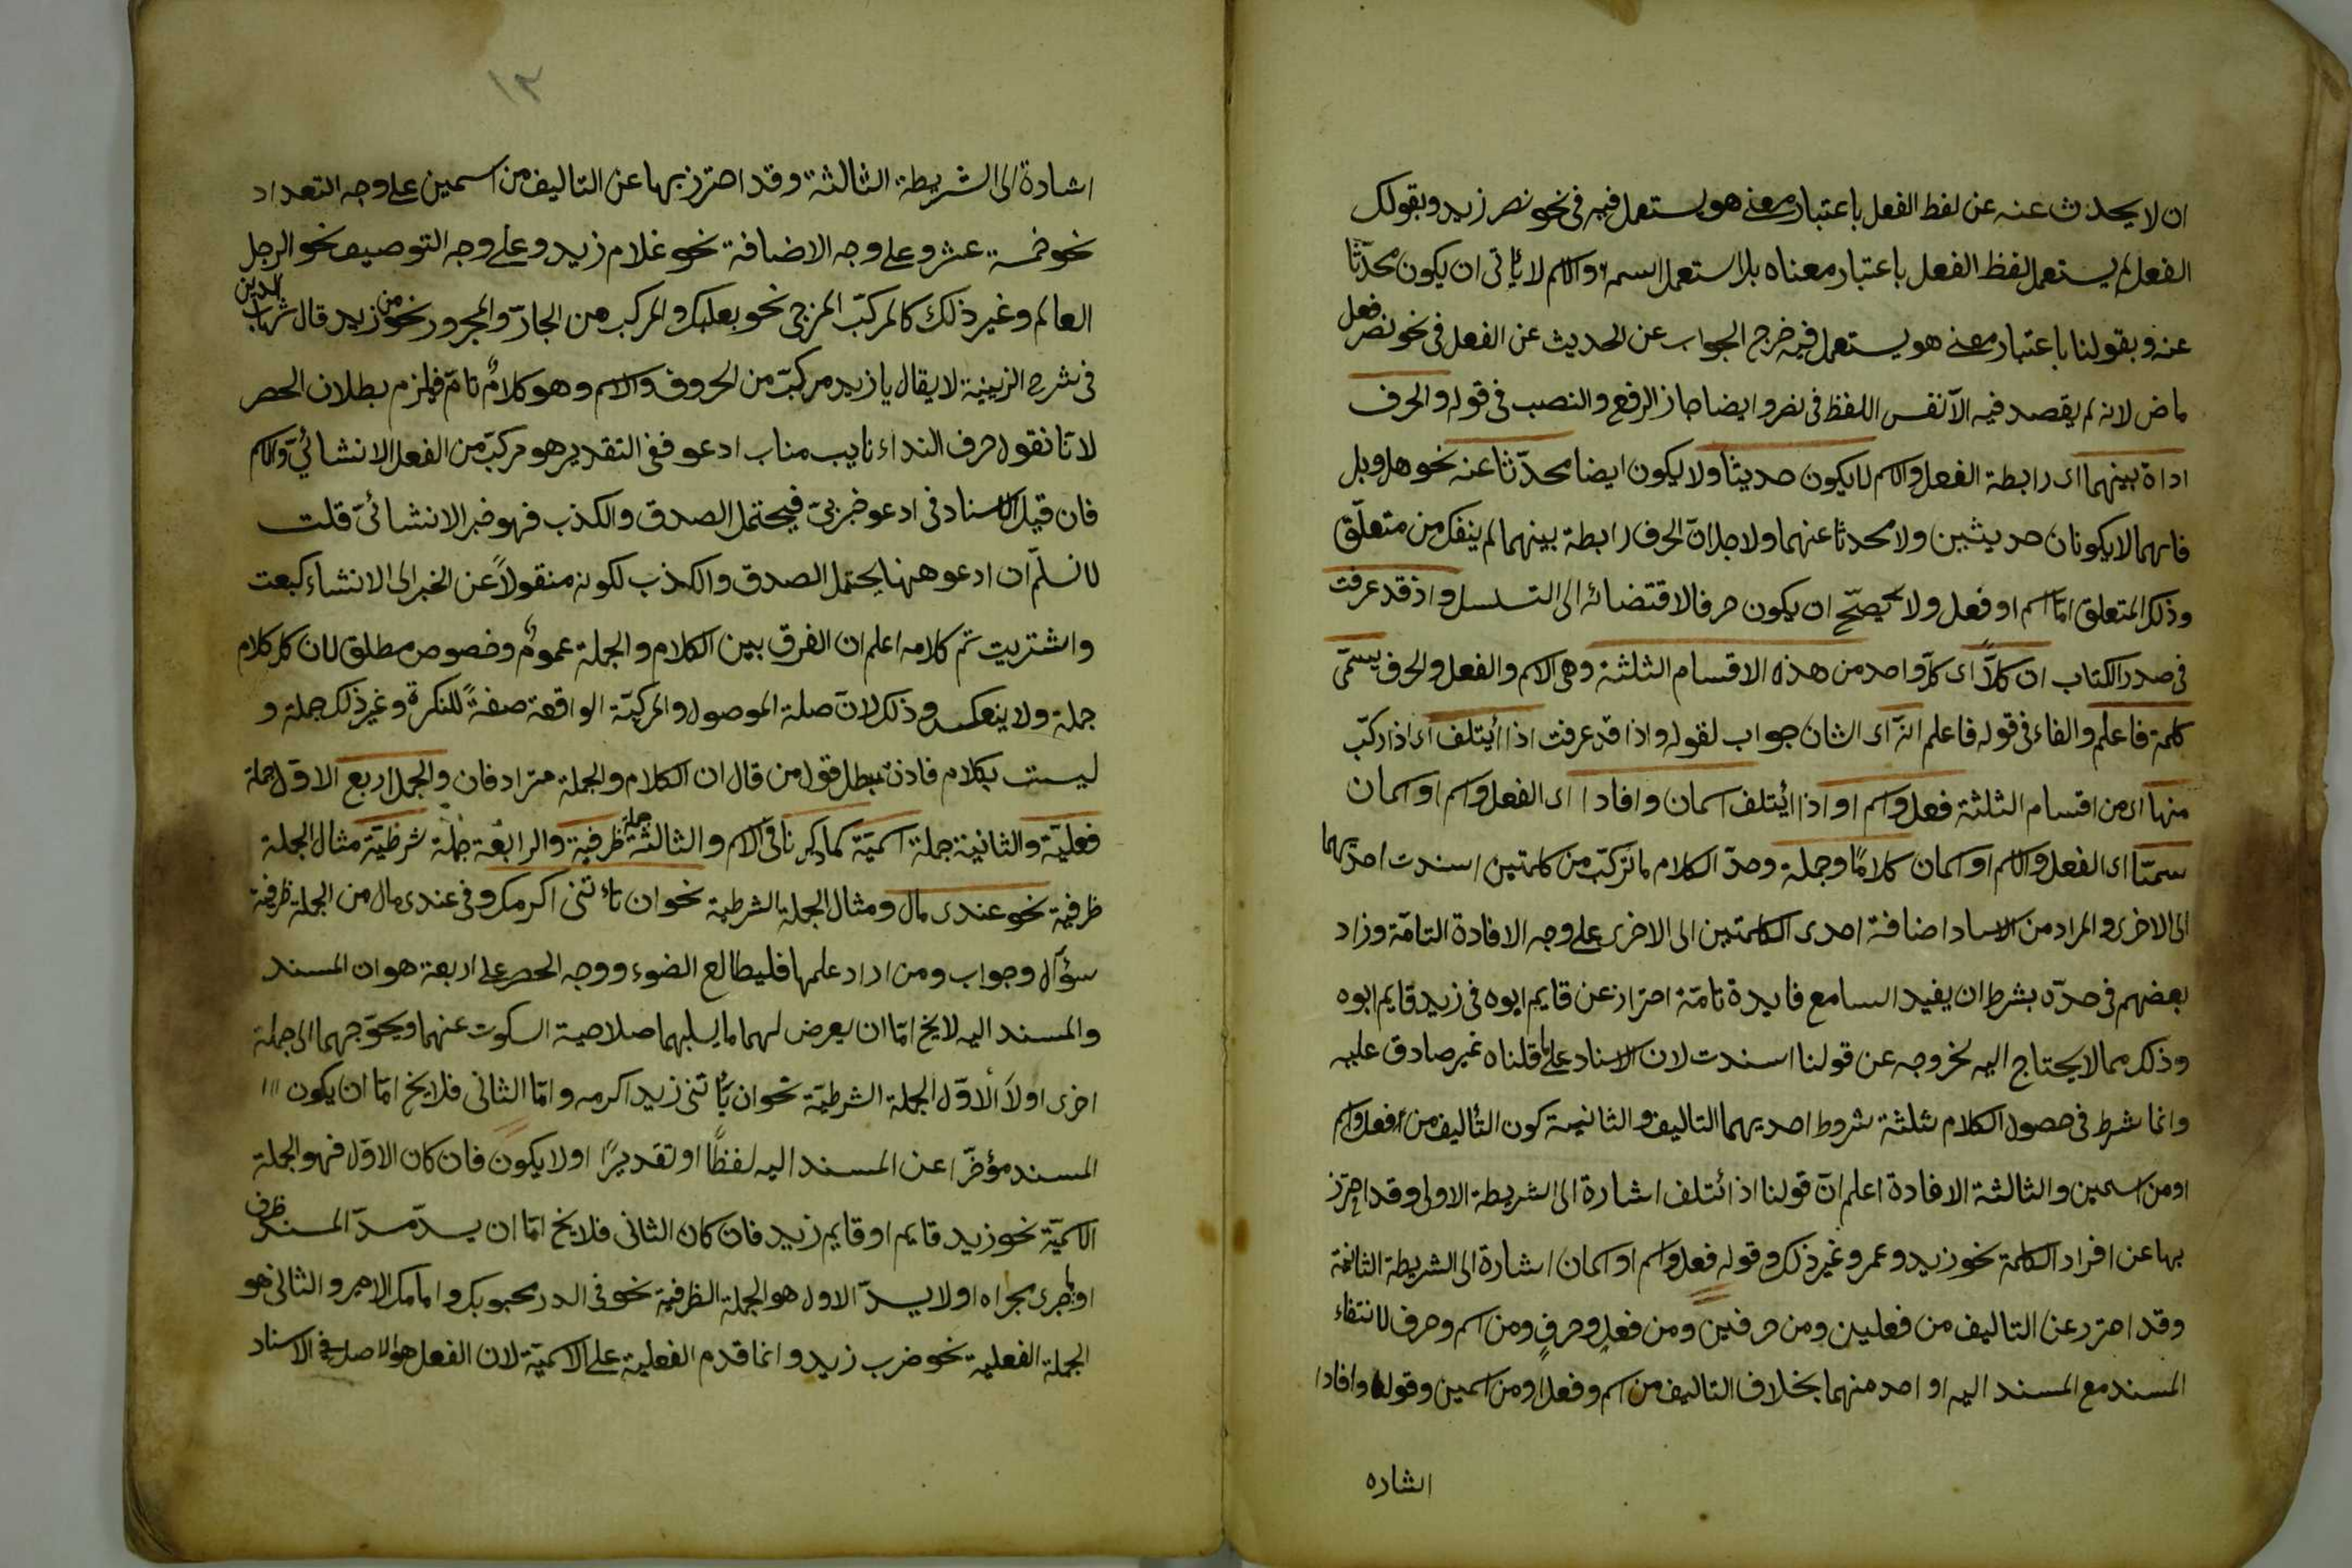 ان لا يحدث عنه عن لفظ الفعل باعتبار معنى هو يستعمل فيه فى نحو نصر زيد وبقولك
الفعل لم يستعمل لفظ الفعل باعتبار معناه بل استعمل اسمه والاسم لا يأتى ان يكون محدّثا
عنه وبقولنا باعتبار معنى هو يستعمل فيه خرج الجواب عن الحديث عن الفعل فى نحو نصر فعل
ماض لانه لم يقصد فيه الا نفس اللفظ فى نصر وايضا جاز الرفع والنصب فى قوله والحرف
اداة بينهما اى رابطة الفعل والاسم لا يكون حديثا ولا يكون ايضا محدّثا عنه نحو هل وبل
فانهما لا يكونان حديثين ولا محدثا عنهما ولاجل انّ الحرف رابطة بينهما لم ينفك من متعلّق
وذلك المتعلق امّا اسم او فعل ولا يصحّ ان يكون حرفا لاقتضائه الى التسلسل واذ قد عرفت
فى صدر الكتاب ان كلاًّ اى كلّ واحد من هذه الاقسام الثلثة وهى الاسم والفعل والحرف يسمّى
كلمة فاعلم والفاء فى قوله فاعلم انّه اى الشان جواب لقوله واذا قد عرفت اذا أيتلف اى اذا ركّب
منها اى من اقسام الثلثة فعل واسم او اذا ايُتلف اسمان وافادا اى الفعل واسم او اسمان
سمّيا اى الفعل والاسم او اسمان كلامًا وجملة وحدّ الكلام ما تركّب من كلمتين اسندت احديهما
الى الاخرى والمراد من الاسناد اضافة احدى الكلمتين الى الاخرى على وجه الافادة التامّة وزاد
بعضهم فى حدّه بشرط ان يفيد السامع فايدة تامّة احترازعن قايم ابوه فى زيد قايم ابوه
وذلك مما لا يحتاج اليه لخروجه عن قولنا اسندت لان الاسناد على ما قلناه غير صادق عليه
وانما شرط فى حصول الكلام ثلثة شروط احديهما التاليف والثانية كون التأليف من فعل واسم
او من اسمين والثالثة الافادة اعلم انّ قولنا اذ ائتلف اشارة الى الشريطة الاولى وقد احترز
بها عن افراد الكلمة نحو زيد وعمرو غير ذلك وقوله فعل واسم او اسمان اشارة الى الشريطة الثانية
وقد احترز عن التاليف من فعلين ومن حرفين ومن فعلٍ وحرفٍ ومن اسم وحرف لانتفاء
المسند مع المسند اليه او احد منهما بخلاف التاليف من اسم وفعل او من اسمين وقوله وافادا
اشاره
١٢
اشارة الى الشريطة الثالثة وقد احترز بها عن التاليف من اسمين على وجه التعداد
نحو خمسة عشر وعلى وجه الاضافة نحو غلام زيد وعلى وجه التوصيف نحو الرجل
العالم وغير ذلك كالمركّب المزجى نحو بعلبك والمركب من الجارّ والمجرور نحو من زيد قال شهاب الدين
فى شرح الزينية لا يقال يا زيد مركبّ من الحروف والاسم وهو كلامٌ تامّ فيلزم بطلان الحصر
لانّا نقول حرف النداء نايب مناب ادعو ففى التقدير هو مركّب من الفعل الانشائىّ والاسم
فان قيل الاسناد فى ادعو خبرىّ فيحتمل الصدق والكذب فهو خبر لا انشائىّ قلت
لا نسلّم ان ادعو ههنا يحتمل الصدق والكذب لكونه منقولاً عن الخبر الى الانشاء كبعت
واشتريت تم كلامه اعلم ان الفرق بين الكلام والجملة عمومٌ وخصوص مطلق لان كل كلام
جملة ولا ينعكس وذلك لانّ صلة الموصول والمركبّة الواقعة صفةً للنكرة وغير ذلك جملة و
ليست بكلام فاذن بطل قول من قال ان الكلام والجملة مترادفان والجمل اربع الاوّل جملة
فعليّة والثانية جملة اسميّة كما ذكرنا فى الاسم والثالثة جملة ظرفية والرابعة جملة شرطيّة مثال الجملة
ظرفية نحو عندى مال ومثال الجملة الشرطية نحو ان تأتنى اكرمك وفى عندى مال من الجملة ظرفية
سؤال وجواب ومن اراد علمها فليطالع الضوء ووجه الحصر على اربعة هو ان المسند
والمسند اليه لا يخ امّا ان يعرض لهما ما يسلبهما صلاحية السكوت عنهما ويحوّجهما الى جملة
اخرى اولاَ الاوّل الجملة الشرطيّة نحو ان يأتنى زيد اكرمه وامّا الثانى فلا يخ امّا ان يكون
المسند مؤخّرا عن المسند اليه لفظًا او تقديرًا اولا يكون فان كان الاوّل فهو الجملة
الاسميّة نحو زيد قايم او قايم زيد فان كان الثانى فلا يخ امّا ان يسدّ مسدّ المسند ظرف
او يجرى مجراه او لا يسدّ الاول هو الجملة الظرفية نحو فى الدر محبوبك وامامك الامير والثانى هو
الجملة الفعلية نحو ضرب زيد وانما قدم الفعلية على الاسميّة لان الفعل هو الاصل فى الاسناد